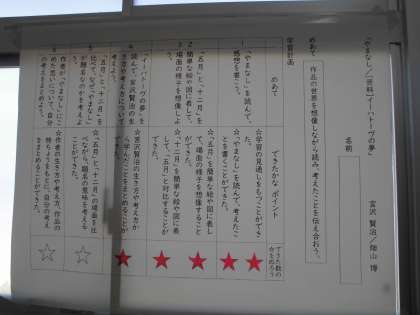 「やまなし」/〔資料〕「イーハトーヴの夢」
宮沢 賢治/畑山 博
名前
めあて 作品の世界を想像しながら読み、考えたことを伝え合おう。
学習計画
めあて
できたかな ポイント
できた数の☆をぬろう
1
「やまなし」を読んで、
感想を書こう。
☆学習の見通しをもつことができた。
☆「やまなし」を読んで、考えたことを書くことができた。
2
3
「五月」と「十二月」を
簡単な絵や図に表して、
場面の様子を想像しよう。
☆「五月」を簡単な絵や図に表して、場面の様子を想像することができた。
☆「十二月」を簡単な絵や図に表して、「五月」と対比することができた。
4
「イーハトーヴの夢」を
読んで、宮沢賢治の生き方や考え方について
考えよう。
☆宮沢賢治の生き方や考え方から学んだことをまとめることができた。
5
「五月」と「十二月」を
比べて、なぜ「やまなし」が題名なのかを考えよう。
☆「五月」と「十二月」の場面を比べながら、題名の意味を考えることができた。
作者が「やまなし」にこめた思いについて、自分の考えをまとめよう。
☆作者の生き方や考え方、作品の特ちょうをもとに、自分の考えをまとめることができた。